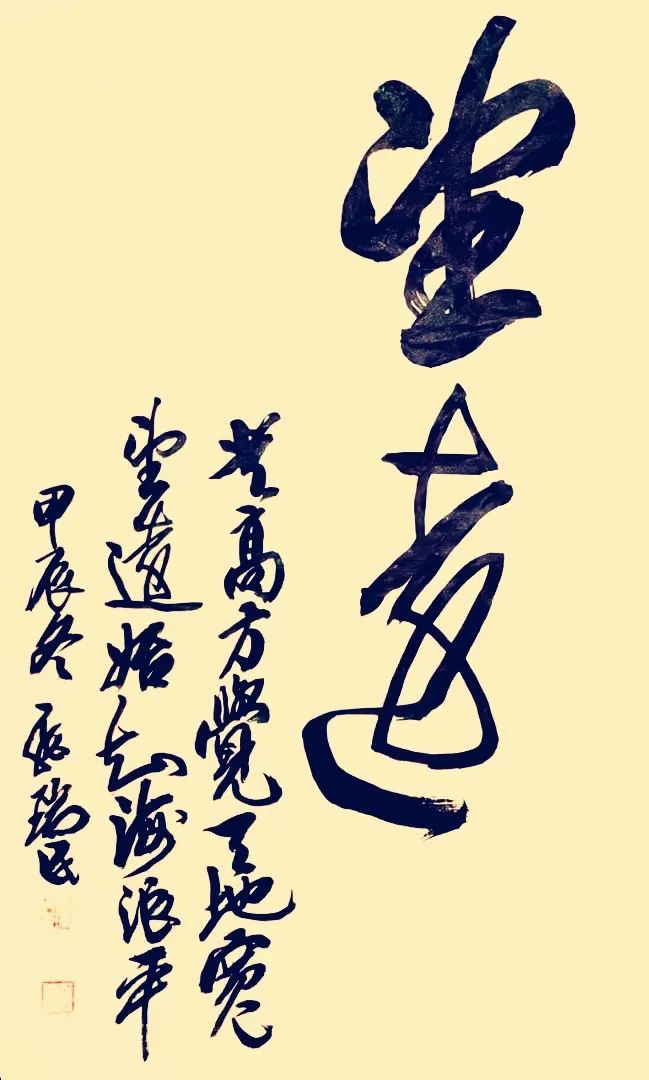 望远
登高方覺天地寬
望遠始知海浪平
甲辰冬 瑞民